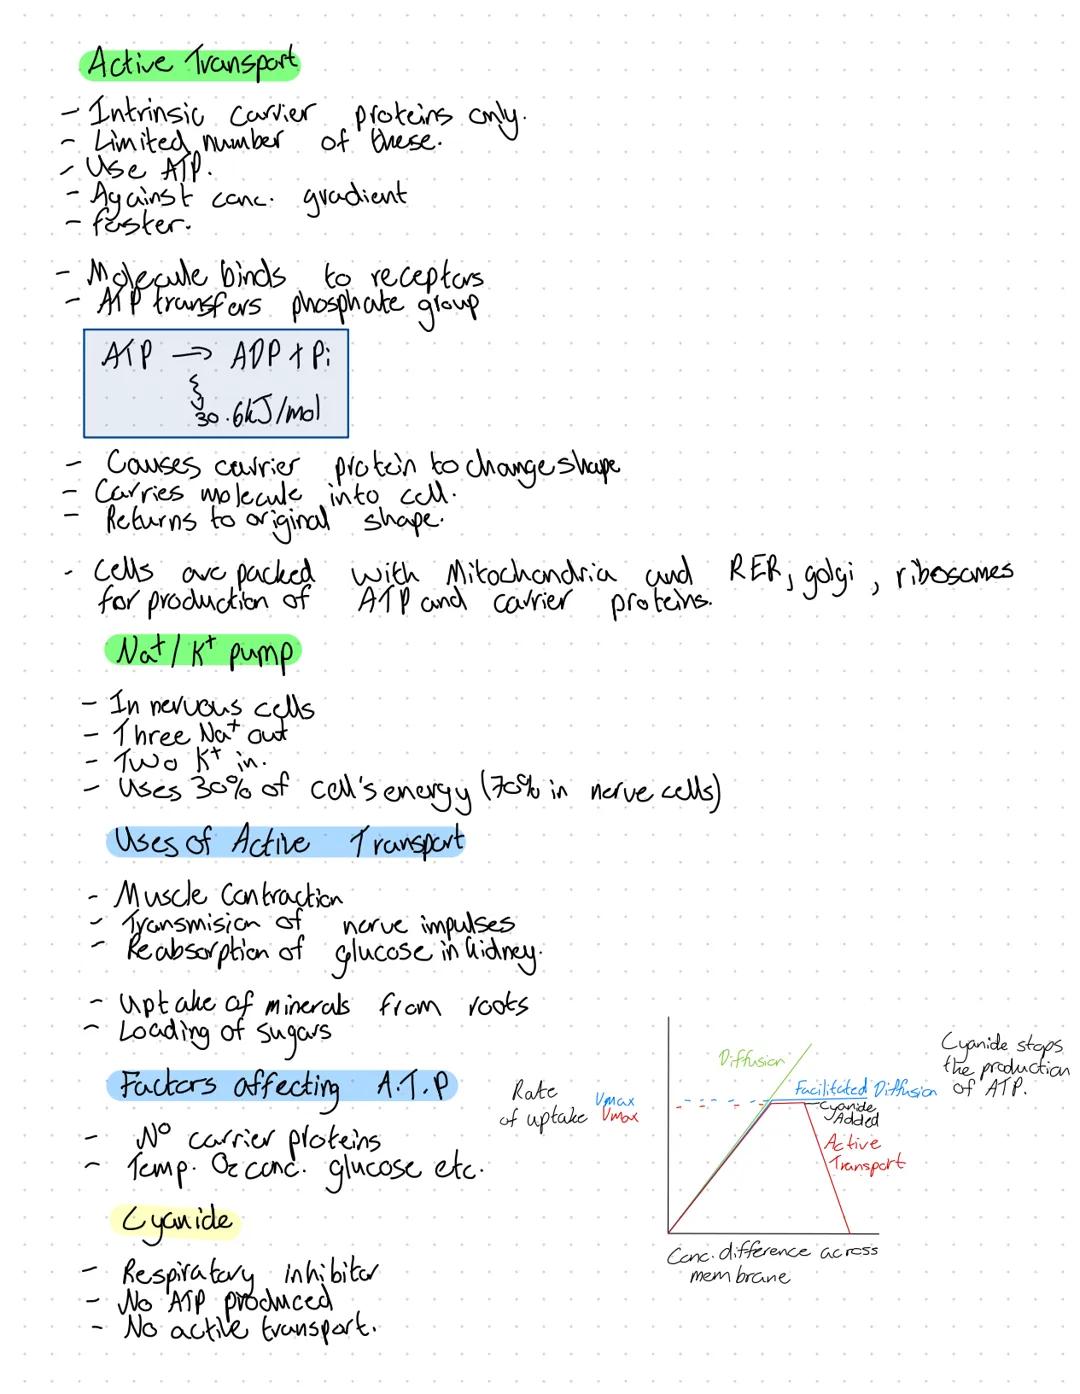 Active Transport
- Intrinsic carrier proteins only.
- Limited number of these.
- Use ATP.
- Against conc. gradient
- faster.
- Molecule binds to receptors
- ATP transfers phosphate group
ATP → ADP + Pi
30.6kJ/mol
- Causes carrier protein to change shape
- Carries molecule into cell.
- Returns to original shape.
- Cells are packed with Mitochondria and RER, golgi, ribosomes
for production of ATP and carrier proteins.
Na+/K+ pump
- In nervous cells
- Three Na+ out
- Two K+ in.
- Uses 30% of cell's energy (70% in nerve cells)
Uses of Active Transport
- Muscle Contraction
- Transmision of nerve impulses
- Reabsorption of glucose in kidney.
- Uptake of minerals from roots
- Loading of sugars
Factors affecting A.T.P
- No carrier proteins
- Temp. O2 conc. glucose etc.
Cyanide
- Respiratory inhibitor
- No ATP produced
- No active transport.
Rate
of uptake
Vmax
Vmax
Diffusion
Facilitated Diffusion
Cyanide
Added
Active
Transport
Conc. difference across
membrane
Cyanide stops
the production
of ATP.